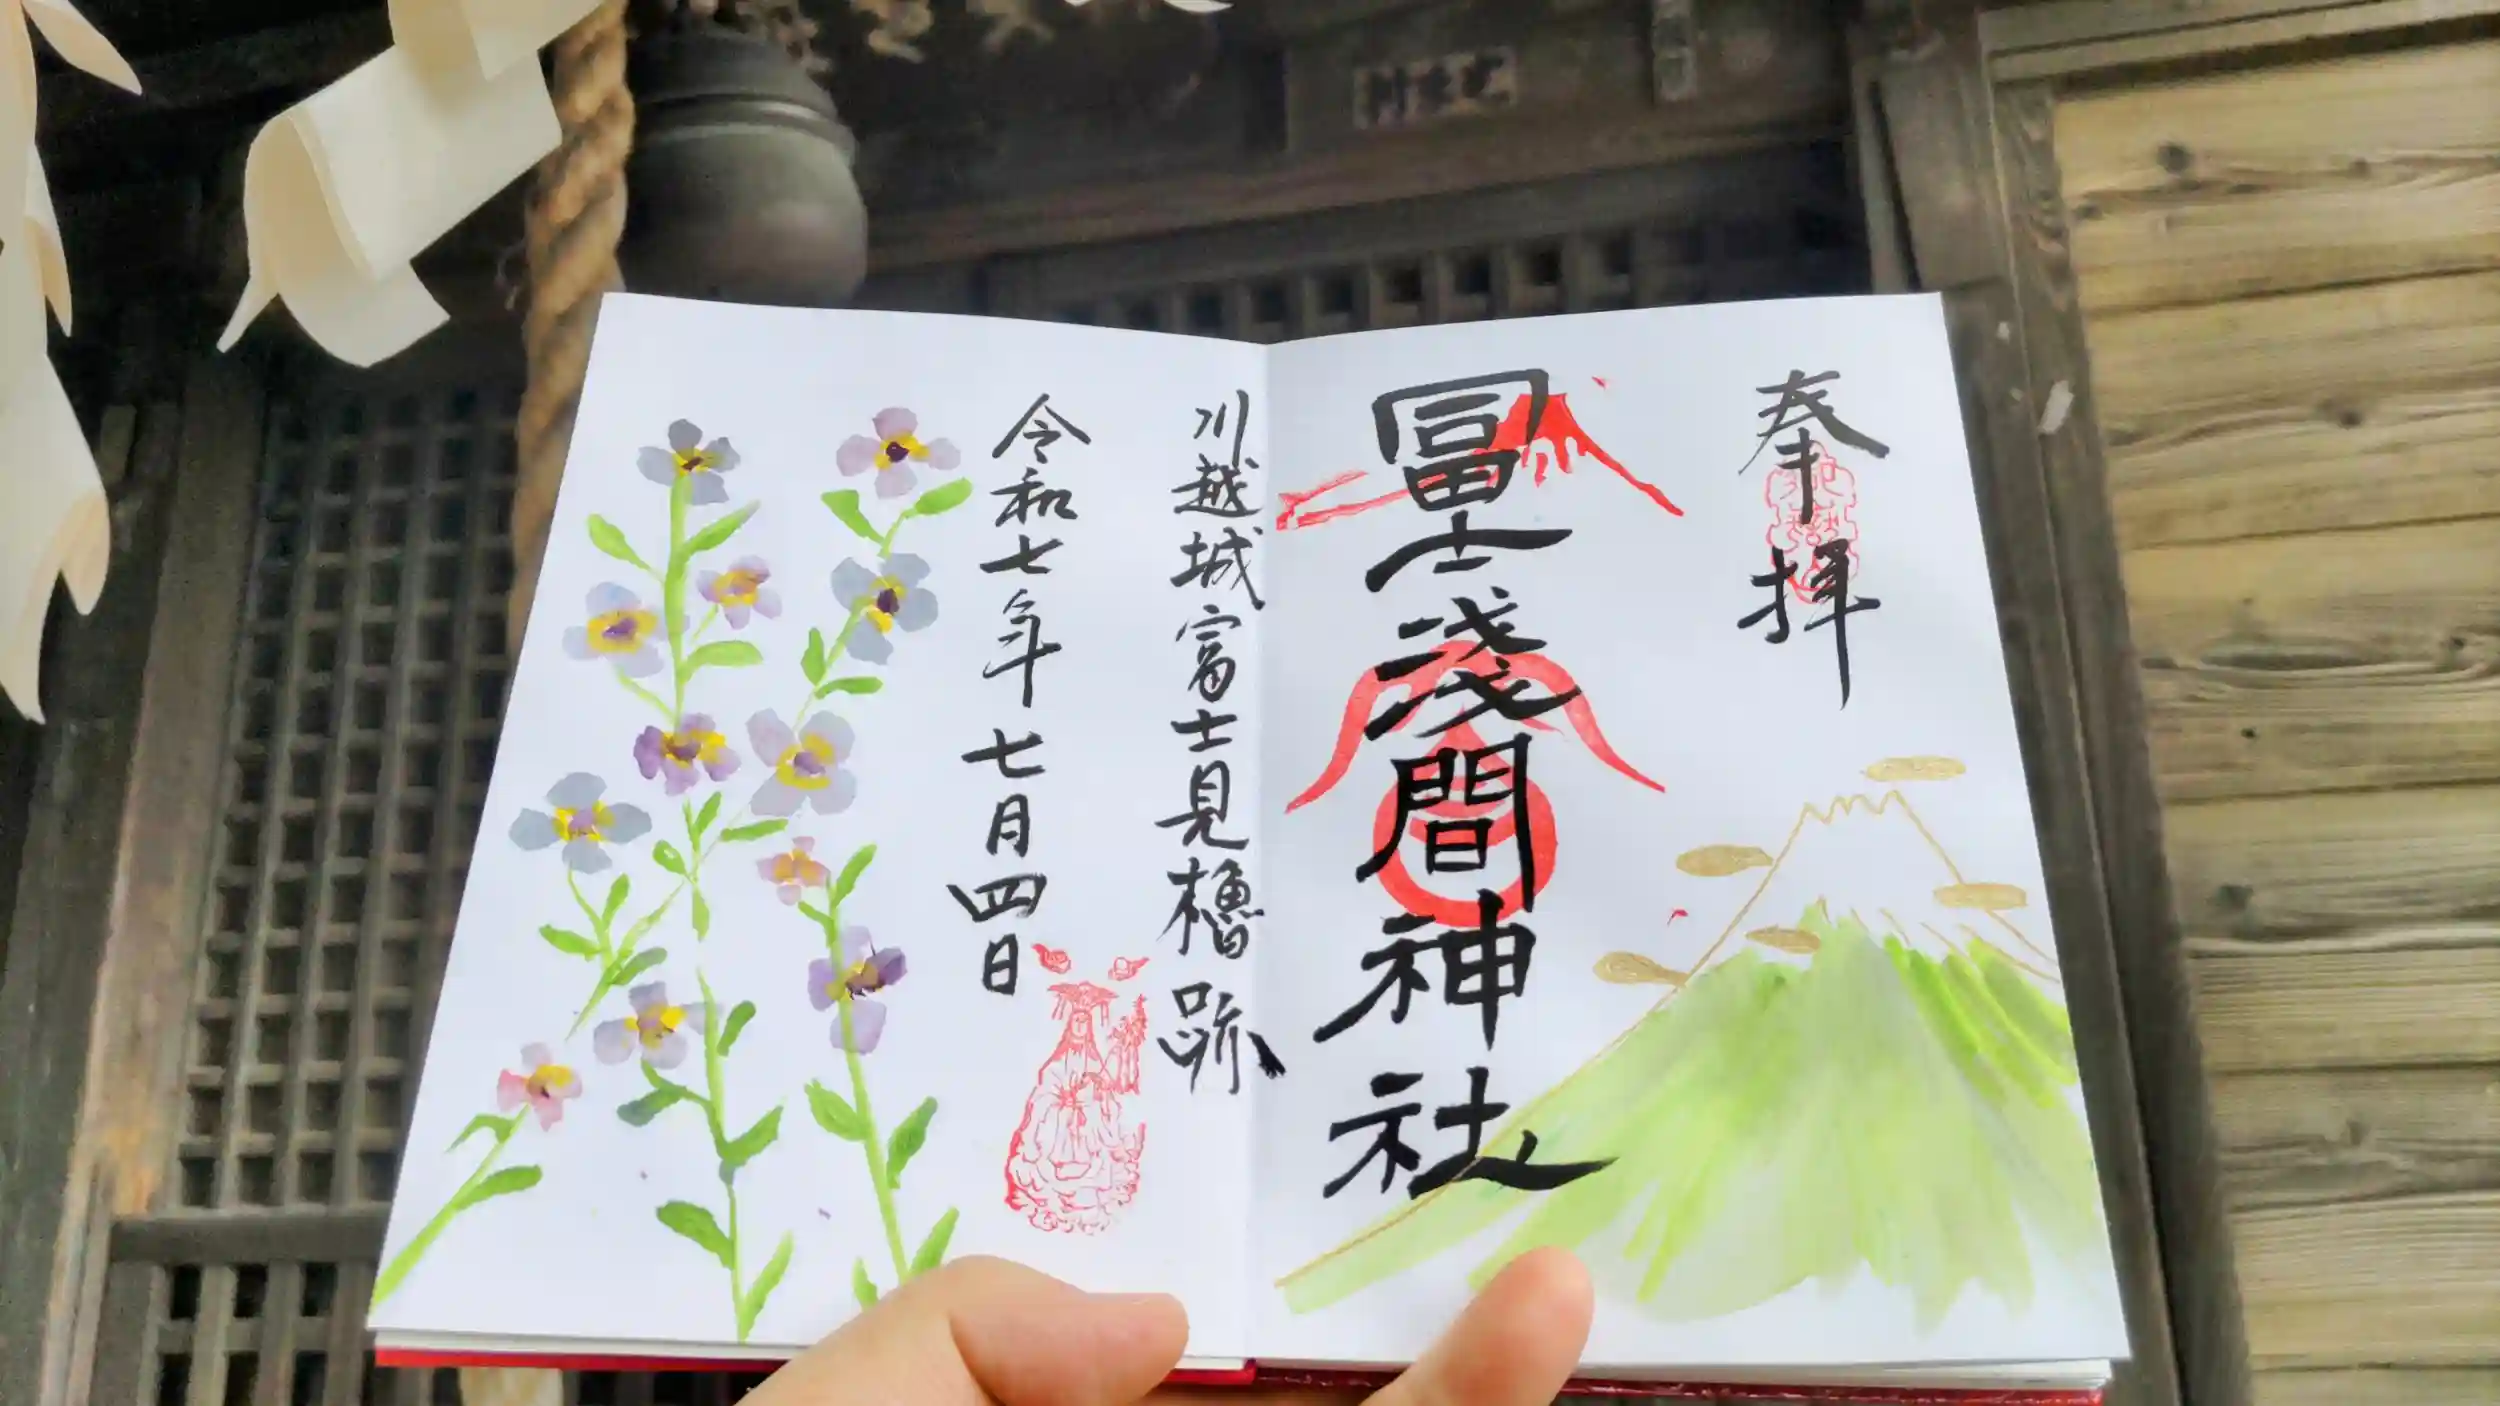 奉拝
冨士浅間神社
川越城富士見櫓跡
令和七年七月四日